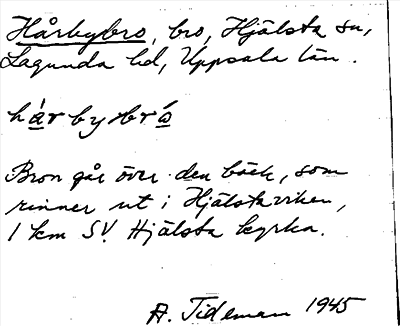 Hårbybro, bro, Hjälsta sn,
Lagunda hd, Uppsala län.
hárbybrå̀
Bron går över den bäck, som
rinner ut i Hjälstaviken,
1 km SV. Hjälsta kyrka.
A. Tideman 1945